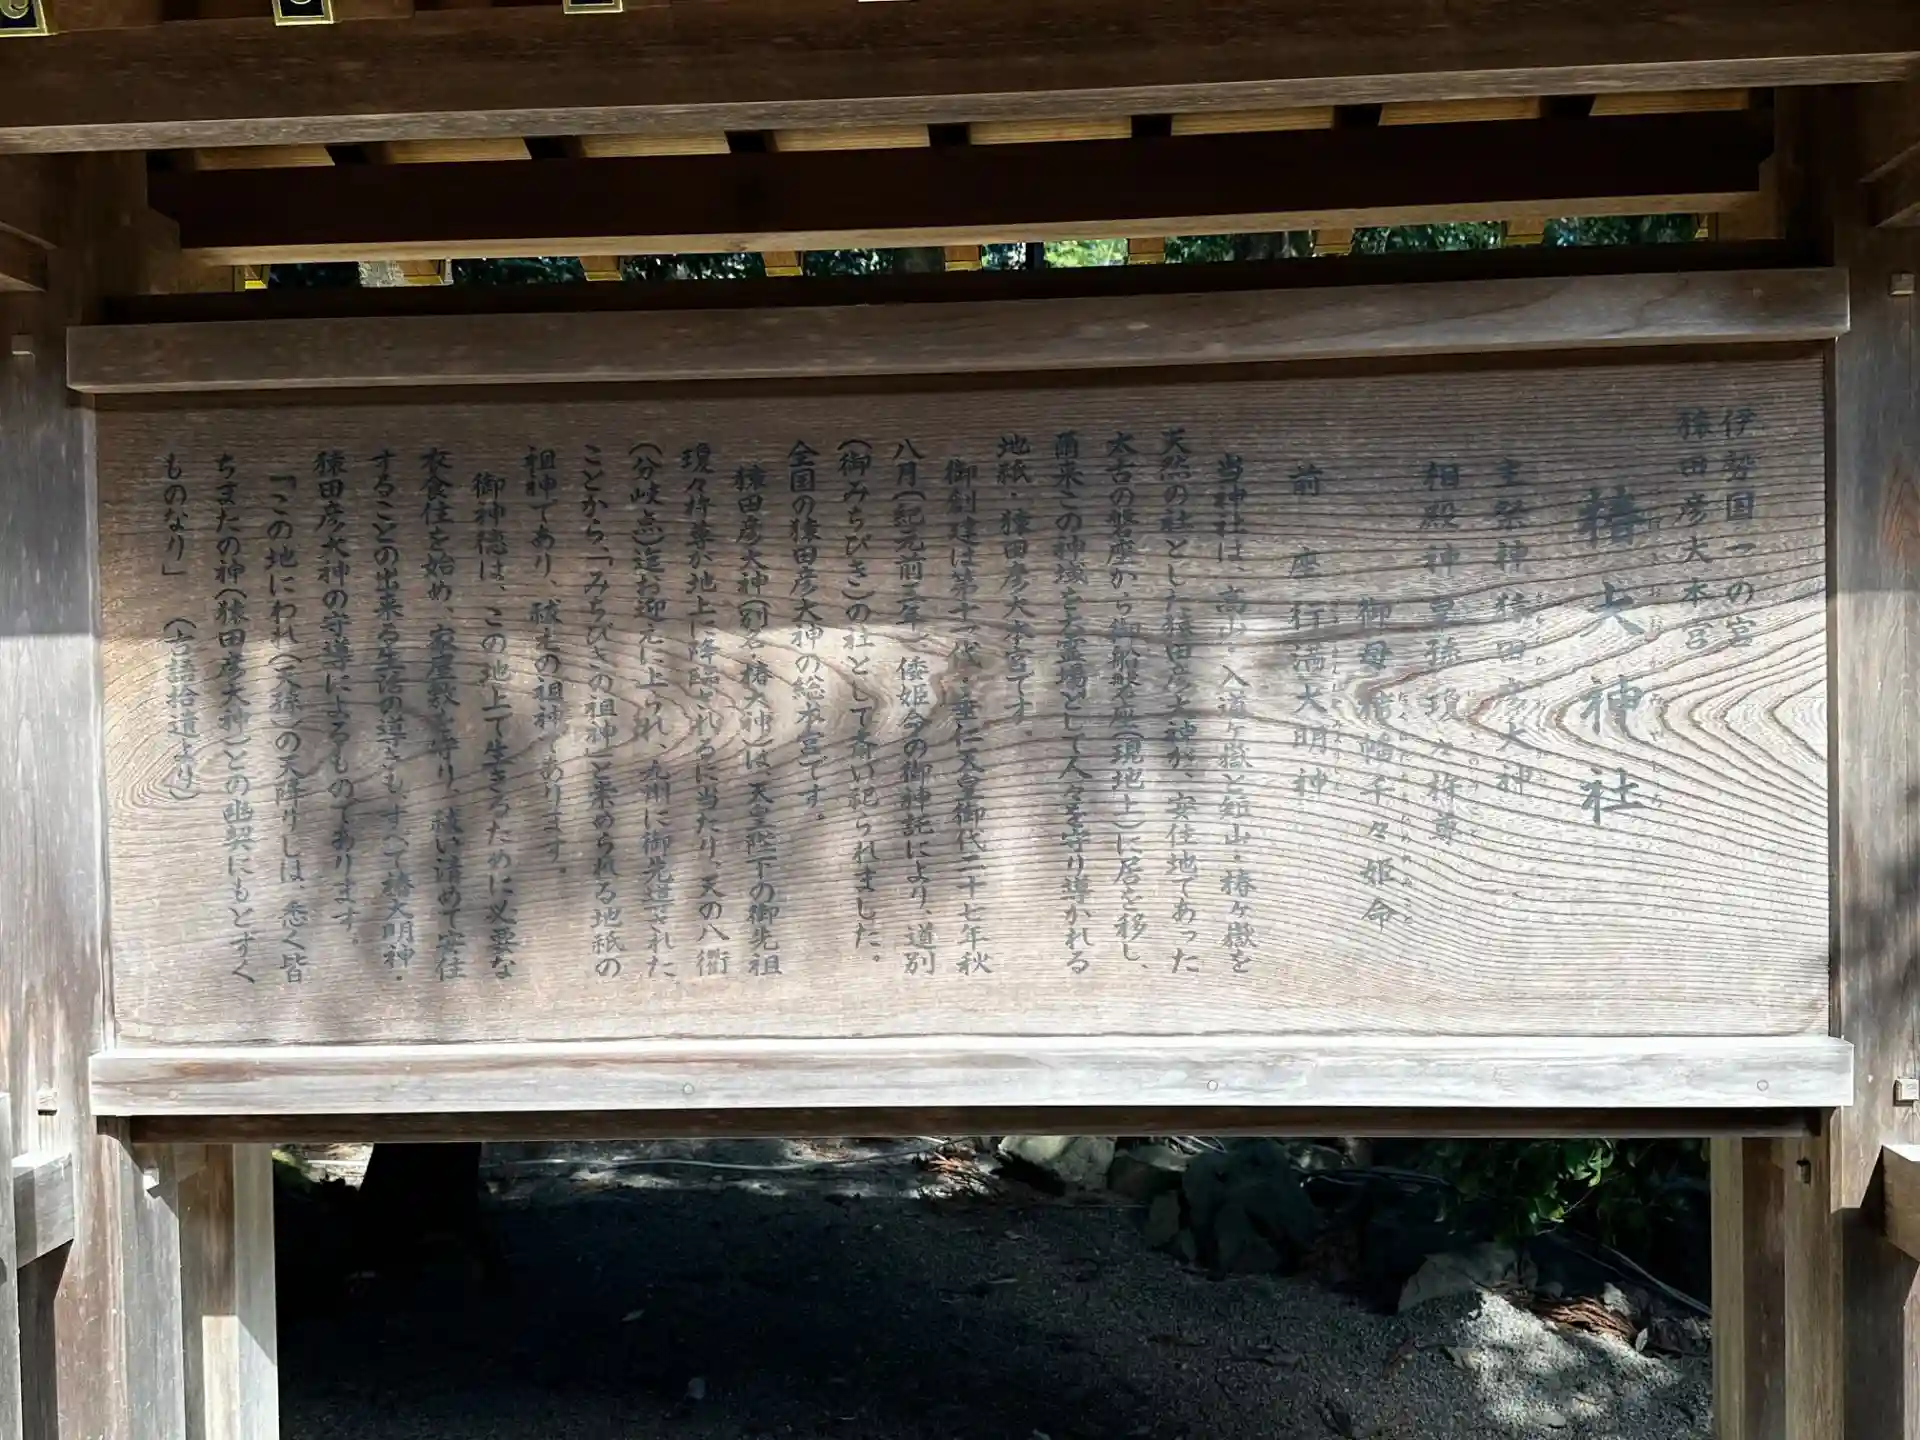 伊勢国一の宮
猿田彦大本宮
椿大神社
主祭神 猿田彦大神
相殿神 皇孫 瓊々杵尊
御母 栲幡千々姫命
前座 行満大明神
当神社は、高山・入道ヶ嶽と短山・椿ヶ嶽を
天然の社とした猿田彦大神が、安住地であった
太古の磐座から御船磐座(現地土)に居を移し、
爾来この神域を大霊場として人々を守り導かれる
地祇・猿田彦大本宮です。
御創建は第十一代・垂仁天皇御代二十七年秋
八月(紀元前三年)、倭姫命の御神託により、道別
(御みちびき)の社として斎い祀られました。
全国の猿田彦大神の総本宮です。
猿田彦大神(別名・椿大神)は、天皇陛下の御先祖
瓊々杵尊が地上に降臨されるに当たり、天の八衢
(分岐点)迄お迎えに上られ、九州に御先導された
ことから、「みちびきの祖神」と崇められる地祇の
祖神であり、祓えの祖神であります。
御神徳は、この地上で生きるために必要な
衣食住を始め、家屋敷を守り、祓い清めて安住
することの出来る生活の導きも、すべて椿大明神・
猿田彦大神の守導によるものであります。
「この地にわれ(天孫)の天降りしは、悉く皆
ちまたの神(猿田彦大神)との幽契にもとずく
ものなり」(古語拾遺より)